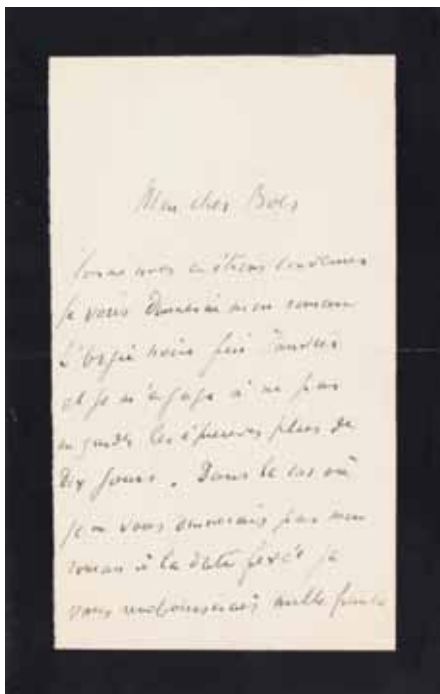 Mon cher Boes
Comme nous en étions convenus
je vous donnerai mon roman
L'orgie noire fin Janvier
et je m'engage à ne pas
en garder les épreuves plus de
dix jours. Dans le cas où
je ne vous enverrais pas mon
roman à la date fixée je
vous rembourserais mille francs